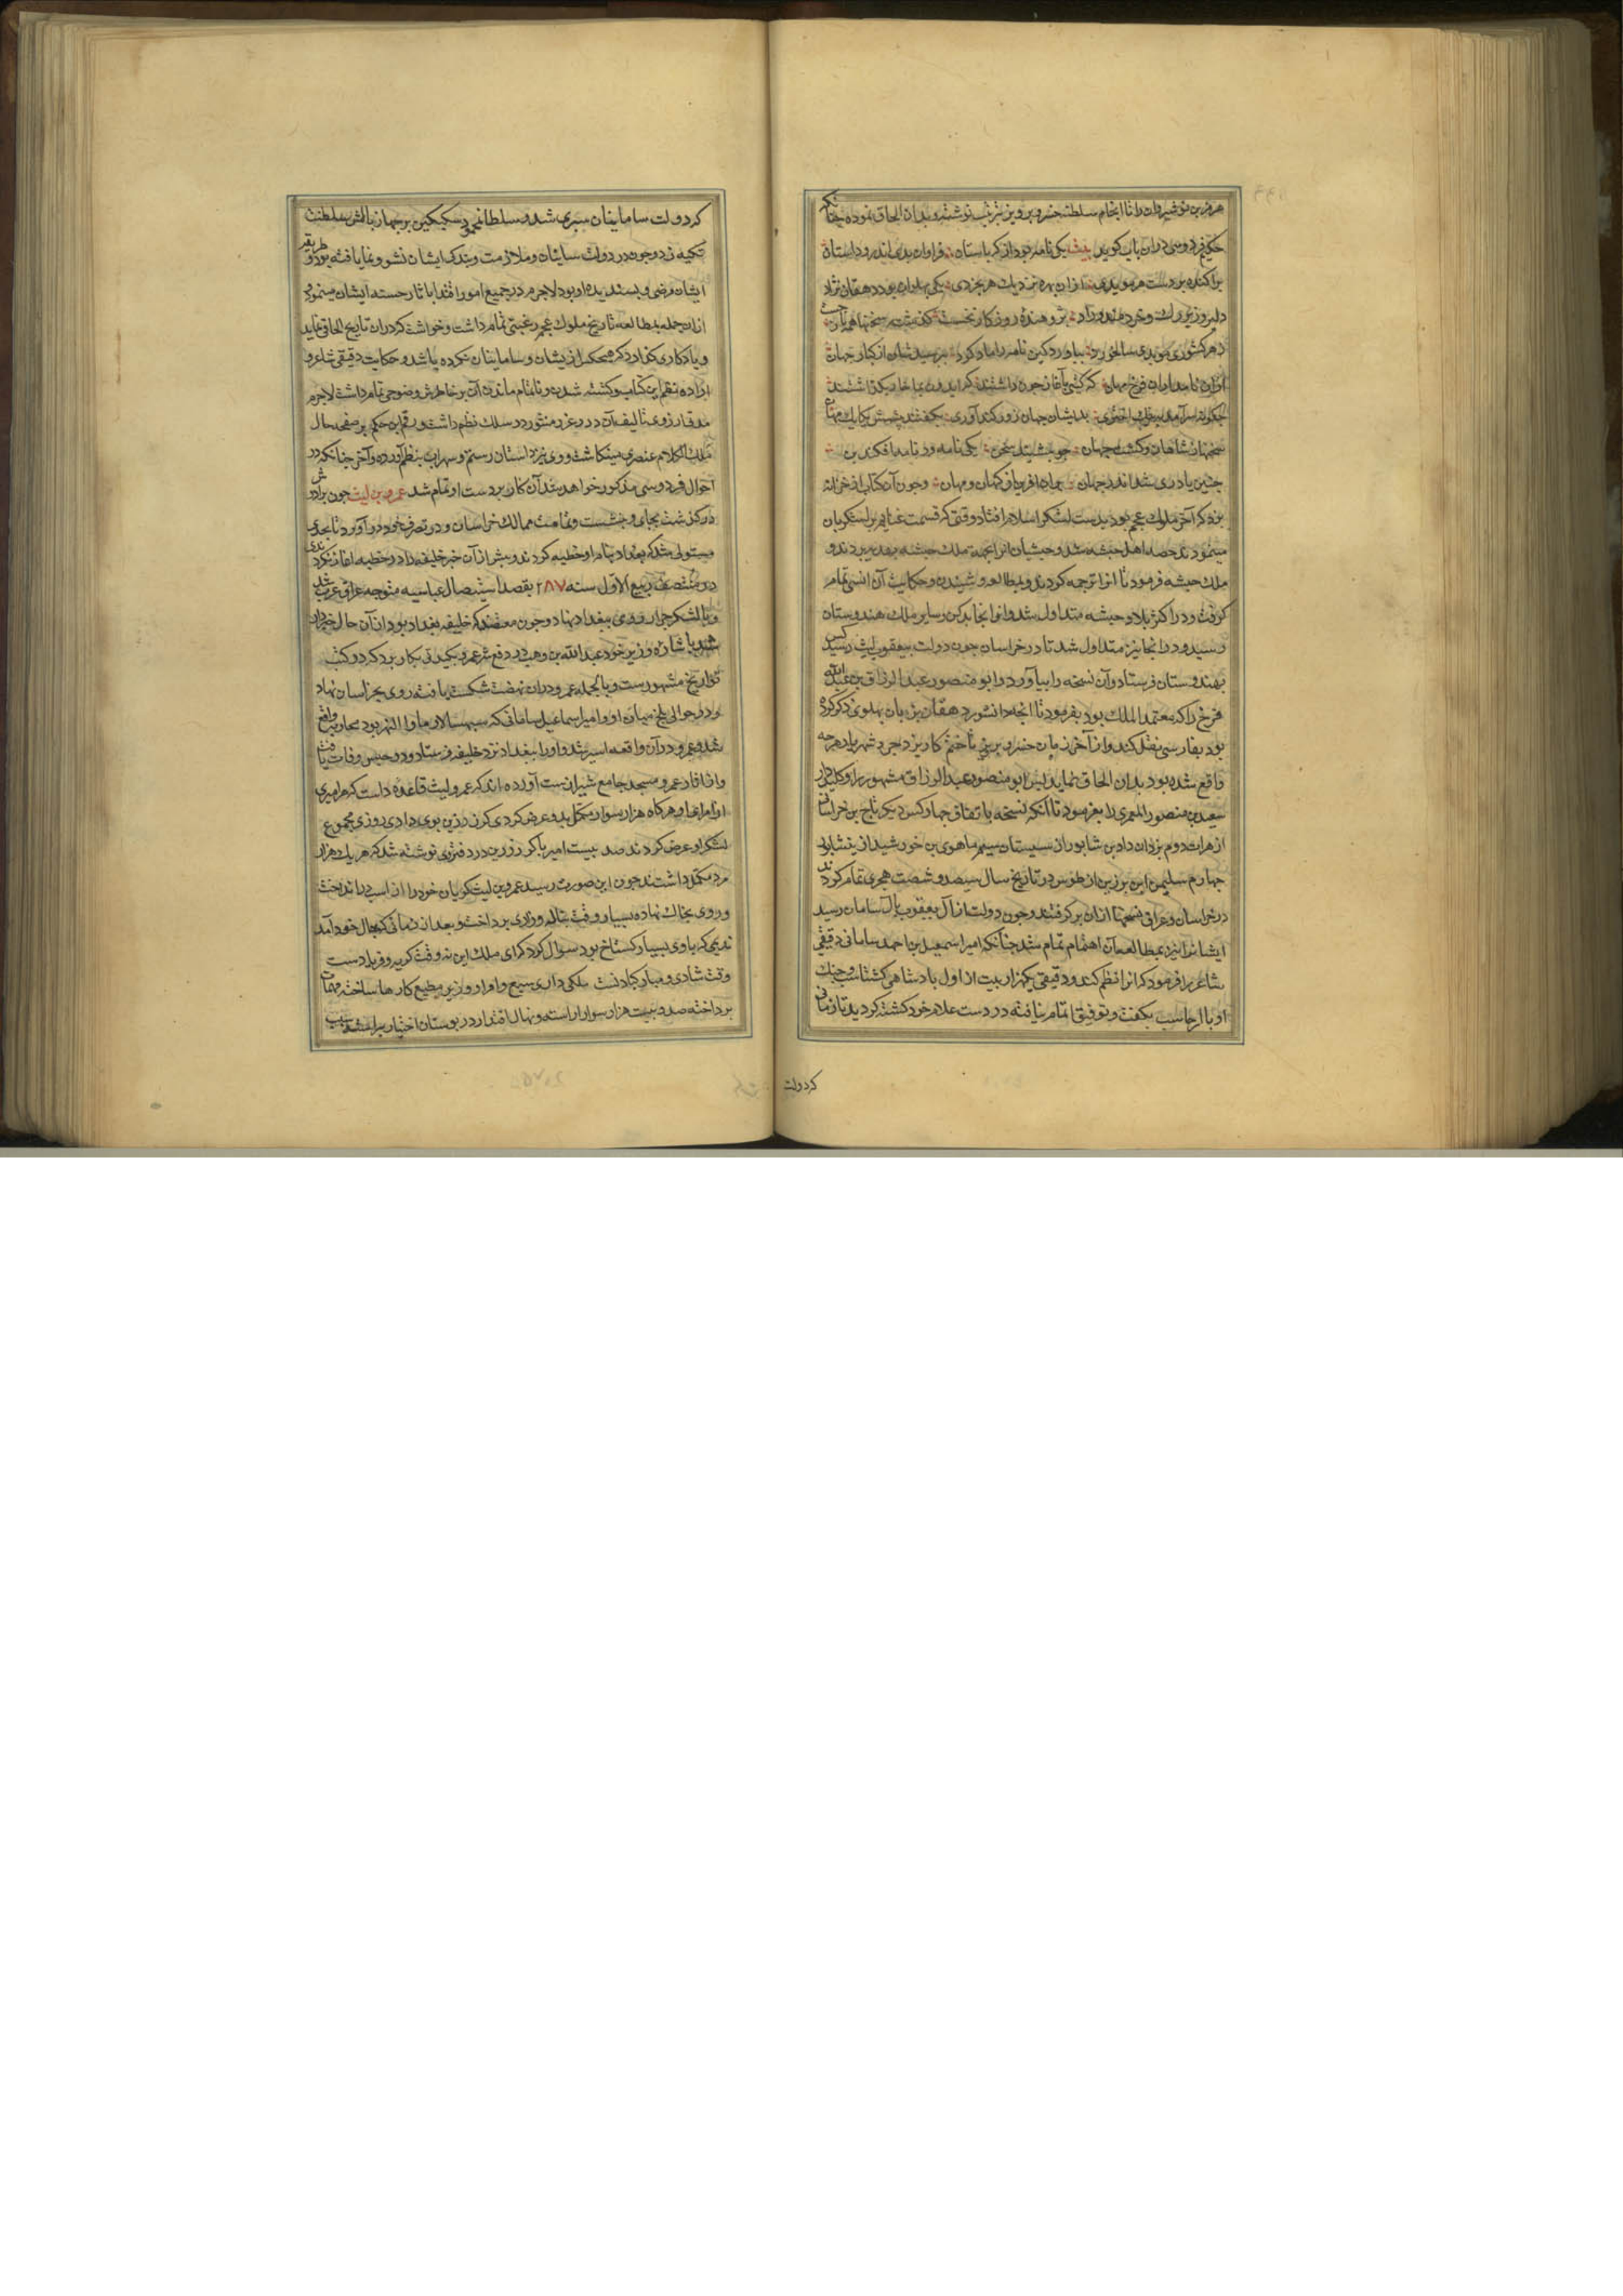 هرمز بن نوشیروان را تا انجام سلطنه خسرو پرویز بترتیب نوشته و بدان الحاق نموده چنانکه
حکیم فردوسی دران باب کوید بیت یکی نامه بود از که باستان فراوان بدو اندرو داستان
پراکنده بر دست هر موبدی ازان بهره نزدیک هر بخردی یکی پهلوان بود دهقان نژاد
دلیر و بزرک و خردمند و راد پژوهندهٔ روزکار نخست کذشته سخنها همه باز جست
ز هر کشوری موبدی سالخورد بیاورد کین نامه را یاد کرد بپرسید شان از کیان جهان
ازان نامداران فرخ مهان که کیتی بآغاز چون داشتند که ایدون بما خوار بکذاشتند
چکونه سرآمد به نیک اختری بدیشان جهان روز کندآوری بکفتند پیشش یکایک مهان
سخنهاء شاهان و کشت جهان چو بشنید سخن یکی نامور نامه افکند بن
چنین یادکاری شد اندر جهان برو آفرین از کهان و مهان و چون آن کتاب از خزانهٔ
یزدکرد آخر ملوک عجم بود بدست لشکر اسلام افتاد و وقتی که قسمت غنایم بر لشکریان
مینمودند حصه اهل حبشه شد و حبشیان انرا بجهة ملک حبشه بهدیه بردند و
ملک حبشه فرمود تا انرا ترجمه کردند و بمطالعه و شنیدن و حکایت آن انسی تمام
کرفت و در اکثر بلاد حبشه متداول شد و از انجا بدکن و سایر ملک هندوستان
رسید و در انجا نیز متداول شد تا در خراسان چون دولت بیعقوب لیث رسید کس
بهندوستان فرستاد و آن نسخه را بیاورد و ابو منصور عبد الرزاق بن عبد الله
فرخ را که معتمد الملک بود بفرمود تا انچه دانشور دهقان بزبان پهلوی ذکر کرده
بود بفارسی نقل کند و از آخر زمان خسرو پرویز تا ختم کار یزدجرد شهریار هرچه
واقع شده بود بدان الحاق نماید پس ابو منصور عبد الرزاق مشهور
سعید بن منصور المعمری را بفرمود تا آنکه نسخه باتفاق چهار کس دیکر تاج بن خراسانی
از هرات دوم یزدان داد بن شابور از سیستان سیم ماهوی بن خورشید از نیشابور
چهارم سلیمن ابن برزین از طوس در تاریخ سال سیصد و شصت هجری تمام کردند
در خراسان و عراق نسخها ازان برکرفتند و چون دولت از آل یعقوب بآل سامان رسید
ایشانرا نیز بمطالعه آن اهتمام تمام شد چنانکه امیر اسمعیل بن احمد سامانی دقیقی
شاعر را فرمود که انرا نظم کند و دقیقی یکهزار بیت از اول پادشاهی کشتاسب و جنک
او با ارجاسب بکفت و توفیق اتمام نیافته در دست غلام خود کشته کردید تا زمانی
که دولت
که دولت سامانیان سپری شد و سلطان محمود سبکتکین بر چهار بالش سلطنت
تکیه زد و چون در دولت سامانیان و ملازمت و بندکی ایشان نشو و نما یافته بود و طریقه
ایشان مرضی و پسندیده او بود لاجرم در جمیع امور اقتدا باثار حسنه ایشان مینمودی
ازان جمله بمطالعه تاریخ ملوک عجم رغبتی تمام داشت و خواست که دران تاریخ الحاقی نماید
و یادکاری کذارد که هیچکس از پیشان و سامانیان نکرده باشد و حکایت دقیقی شاعر و
اراده نظم این کتاب و کشته شدن و ناتمام ماندن آن بر خاطرش وضوحی تمام داشت لاجرم
آرزوی تالیف آن درر و غرر منثور در سلک نظم داشت و رقم این حکم بر صفحه حال
ملک الکلام عنصری مینکاشت و وی نیز داستان رستم و سهراب بنظم آورده و آخر چنانکه در
احوال فردوسی مذکور خواهد شد آن کار بر دست او تمام شد عمرو بن لیث چون برادرش
درکذشت بجای وی نشست و تمامت ممالک خراسان و در تصرف خود درآورد تا بحدی
مستولی شد که ببغداد بنام او خطبه کردند و پیش ازان جز خلیفه را در خطبه آغاز نکردندی
در منتصف ربیع الاول سنه ۲۸۷ بقصد استیصال عباسیه متوجه عراق عرب شد
و با لشکر جرار روی ببغداد نهاد و چون معتضد که خلیفه بغداد بود ازان حال خبردار
شد باشارهٔ وزیر خود عبد الله بن وهب در دفع شر عمرو بکار برد که در کتب
تواریخ مشهورست و بالجمله عمرو دران نهضت شکست یافته روی بخراسان نهاد
و در حوالی بلخ میان او و امیر اسماعیل سامانی که سپهسالار ماورا النهر بود محاربه واقع
شد و عمرو در آن واقعه اسیر شد و او را ببغداد نزد خلیفه فرستاد و در حبس وفات یافت
و از اثار عمرو مسجد جامع شیرازست آورده اند که عمرو لیث قاعده داشت که هر امیری
از امراء او هرکاه هزار سوار مکمل بدو عرض کردی کرز زرین بوی دادی روزی مجموع
لشکر او عرض کردند صد بیست امیر با کرز زرین در دفتر وی نوشته شد که هر یک هزار
مرد مکمل داشتند چون این صورت رسید عمرو بن لیث کریان خود را از اسب در انداخت
و روی بخاک نهاده بسیار وقت بناله و زاری پرداخت و بعد از زمانی که بحال خود آمد
ندیمی که با وی بسیار کستاخ بود سوال کرد که ای ملک این نه وقت کریه و فریادست
وقت شادی و مبارکبادست ملکی داری وسیع و امرا و وزیر مطیع کارها ساخته مهمات
پرداخته صد و بیست هزار سوار اراسته و نهال اقتدار در بوستان اختیار سبب